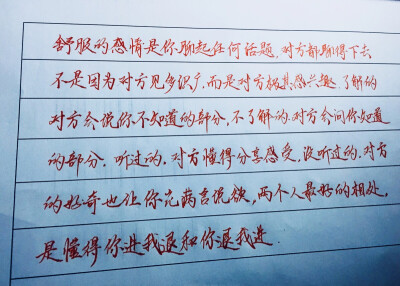 舒服的感情是你聊起任何话题，对方都聊得下去
不是因为对方见多识广，而是对方极其感兴趣，了解的
对方会说你不知道的部分，不了解的，对方会问你知道
的部分，听过的，对方懂得分享感受，没听过的，对方
的好奇也让你充满言说欲，两个人最好的相处，
是懂得你进我退和你退我进